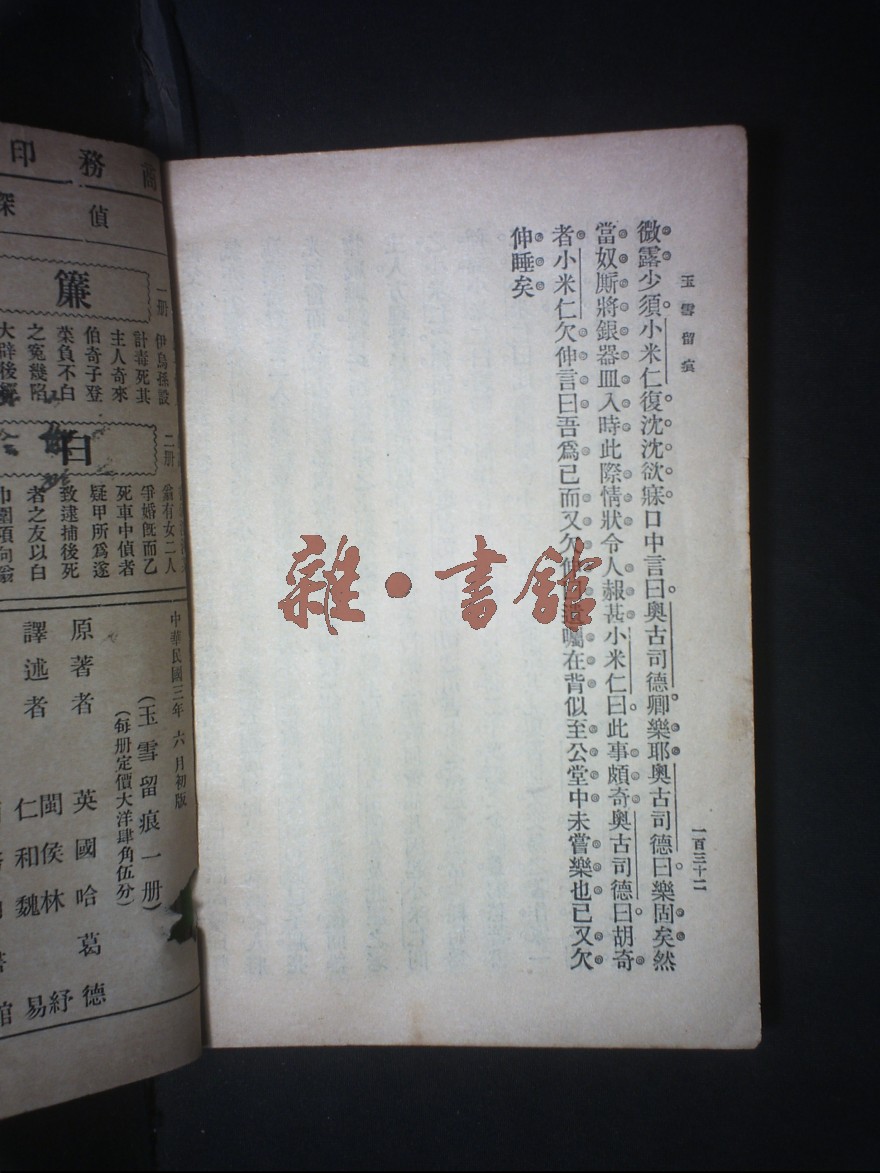 玉雪留痕
一百三十二
微露少須小米仁復沈沈欲寐口中言曰奧古司德卿樂耶奧古司德曰樂固矣然
當奴厮將銀器皿入時此際情狀令人赧甚小米仁曰此事頗奇奧古司德曰胡奇
者小米仁欠伸言曰吾爲已而又欠伸曰遺囑在背似至公堂中未嘗樂也已又欠
伸睡矣
雜·書館
商務印
偵探
簾
一册
伊烏孫設
計毒死其
主人奇來
伯奇子登
棻負不白
之寃幾陷
大辟後
白
二册
翁有女二人
爭婚旣而乙
死車中偵者
疑甲所爲遂
致逮捕後死
者之友以白
巾圍項向
中華民國三年六月初版
(玉雪留痕一册)
(每册定價大洋肆角伍分)
原著者 英國哈葛德
譯述者 閩侯林紓
仁和魏易
館